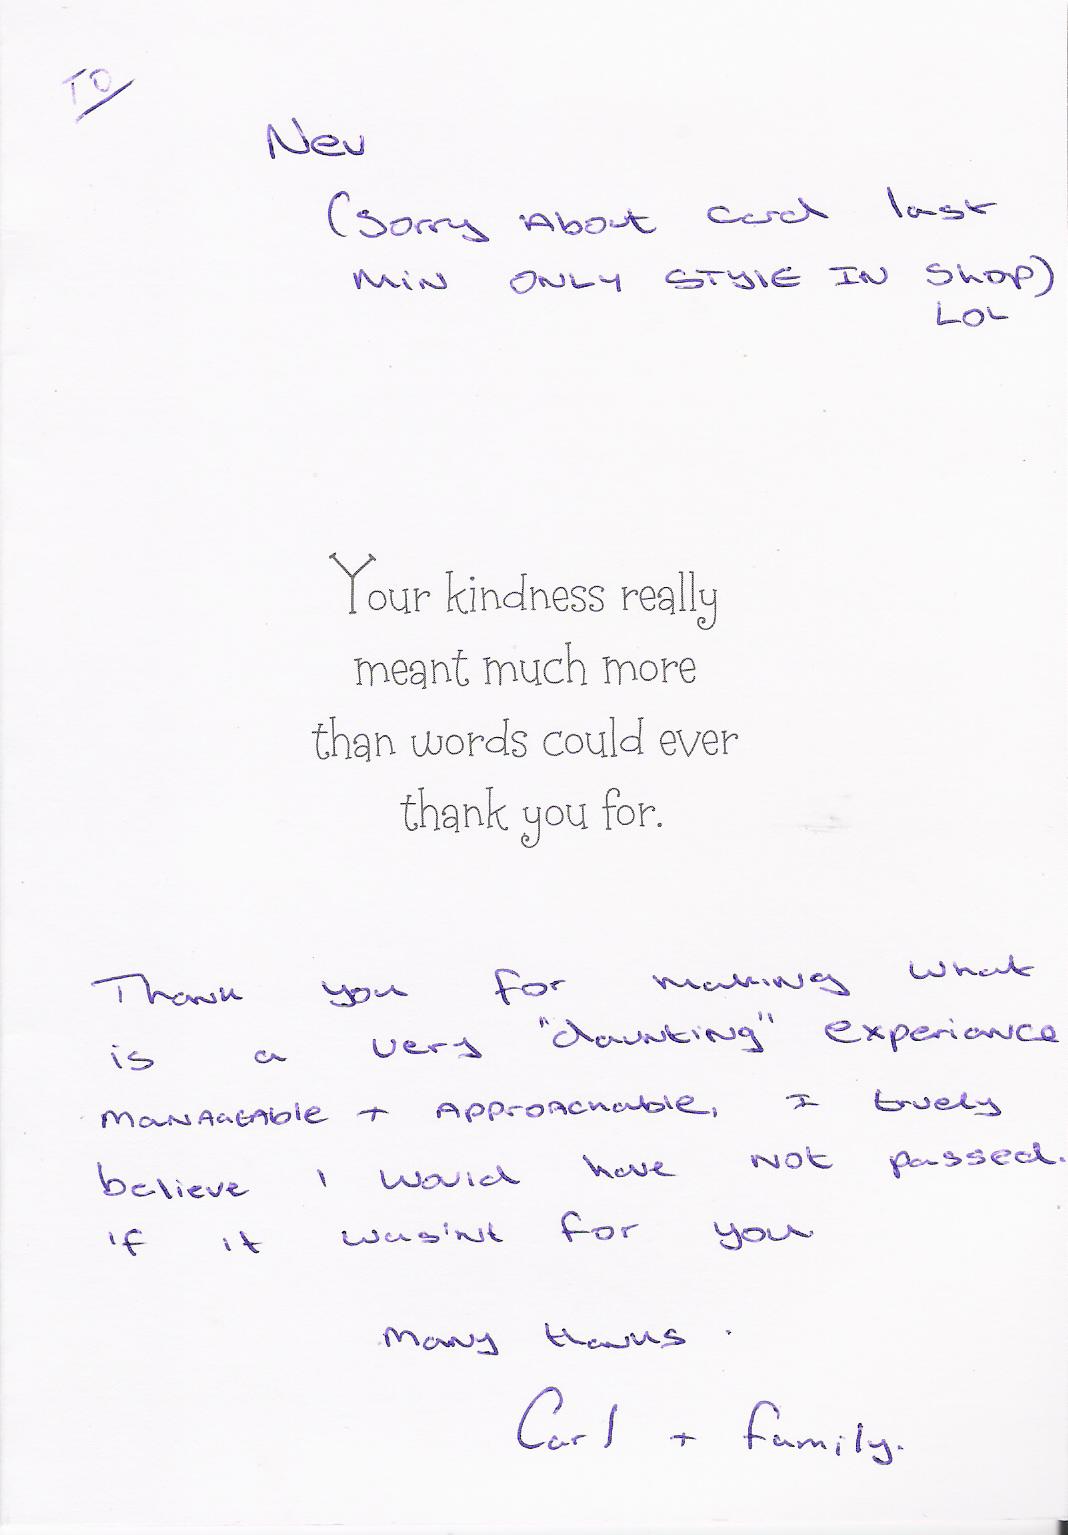 TO
Nev
(Sorry About card last
MIN ONLY STYLE IN SHOP)
LOL
Your kindness really
meant much more
than words could ever
thank you for.
Thank you for making what
is a very "daunting" experiance
MANAgEAble + APPrOAchable, I truely
believe I would have NOT passed.
if it wasi'nt for you
Many thanks.
Carl + family.